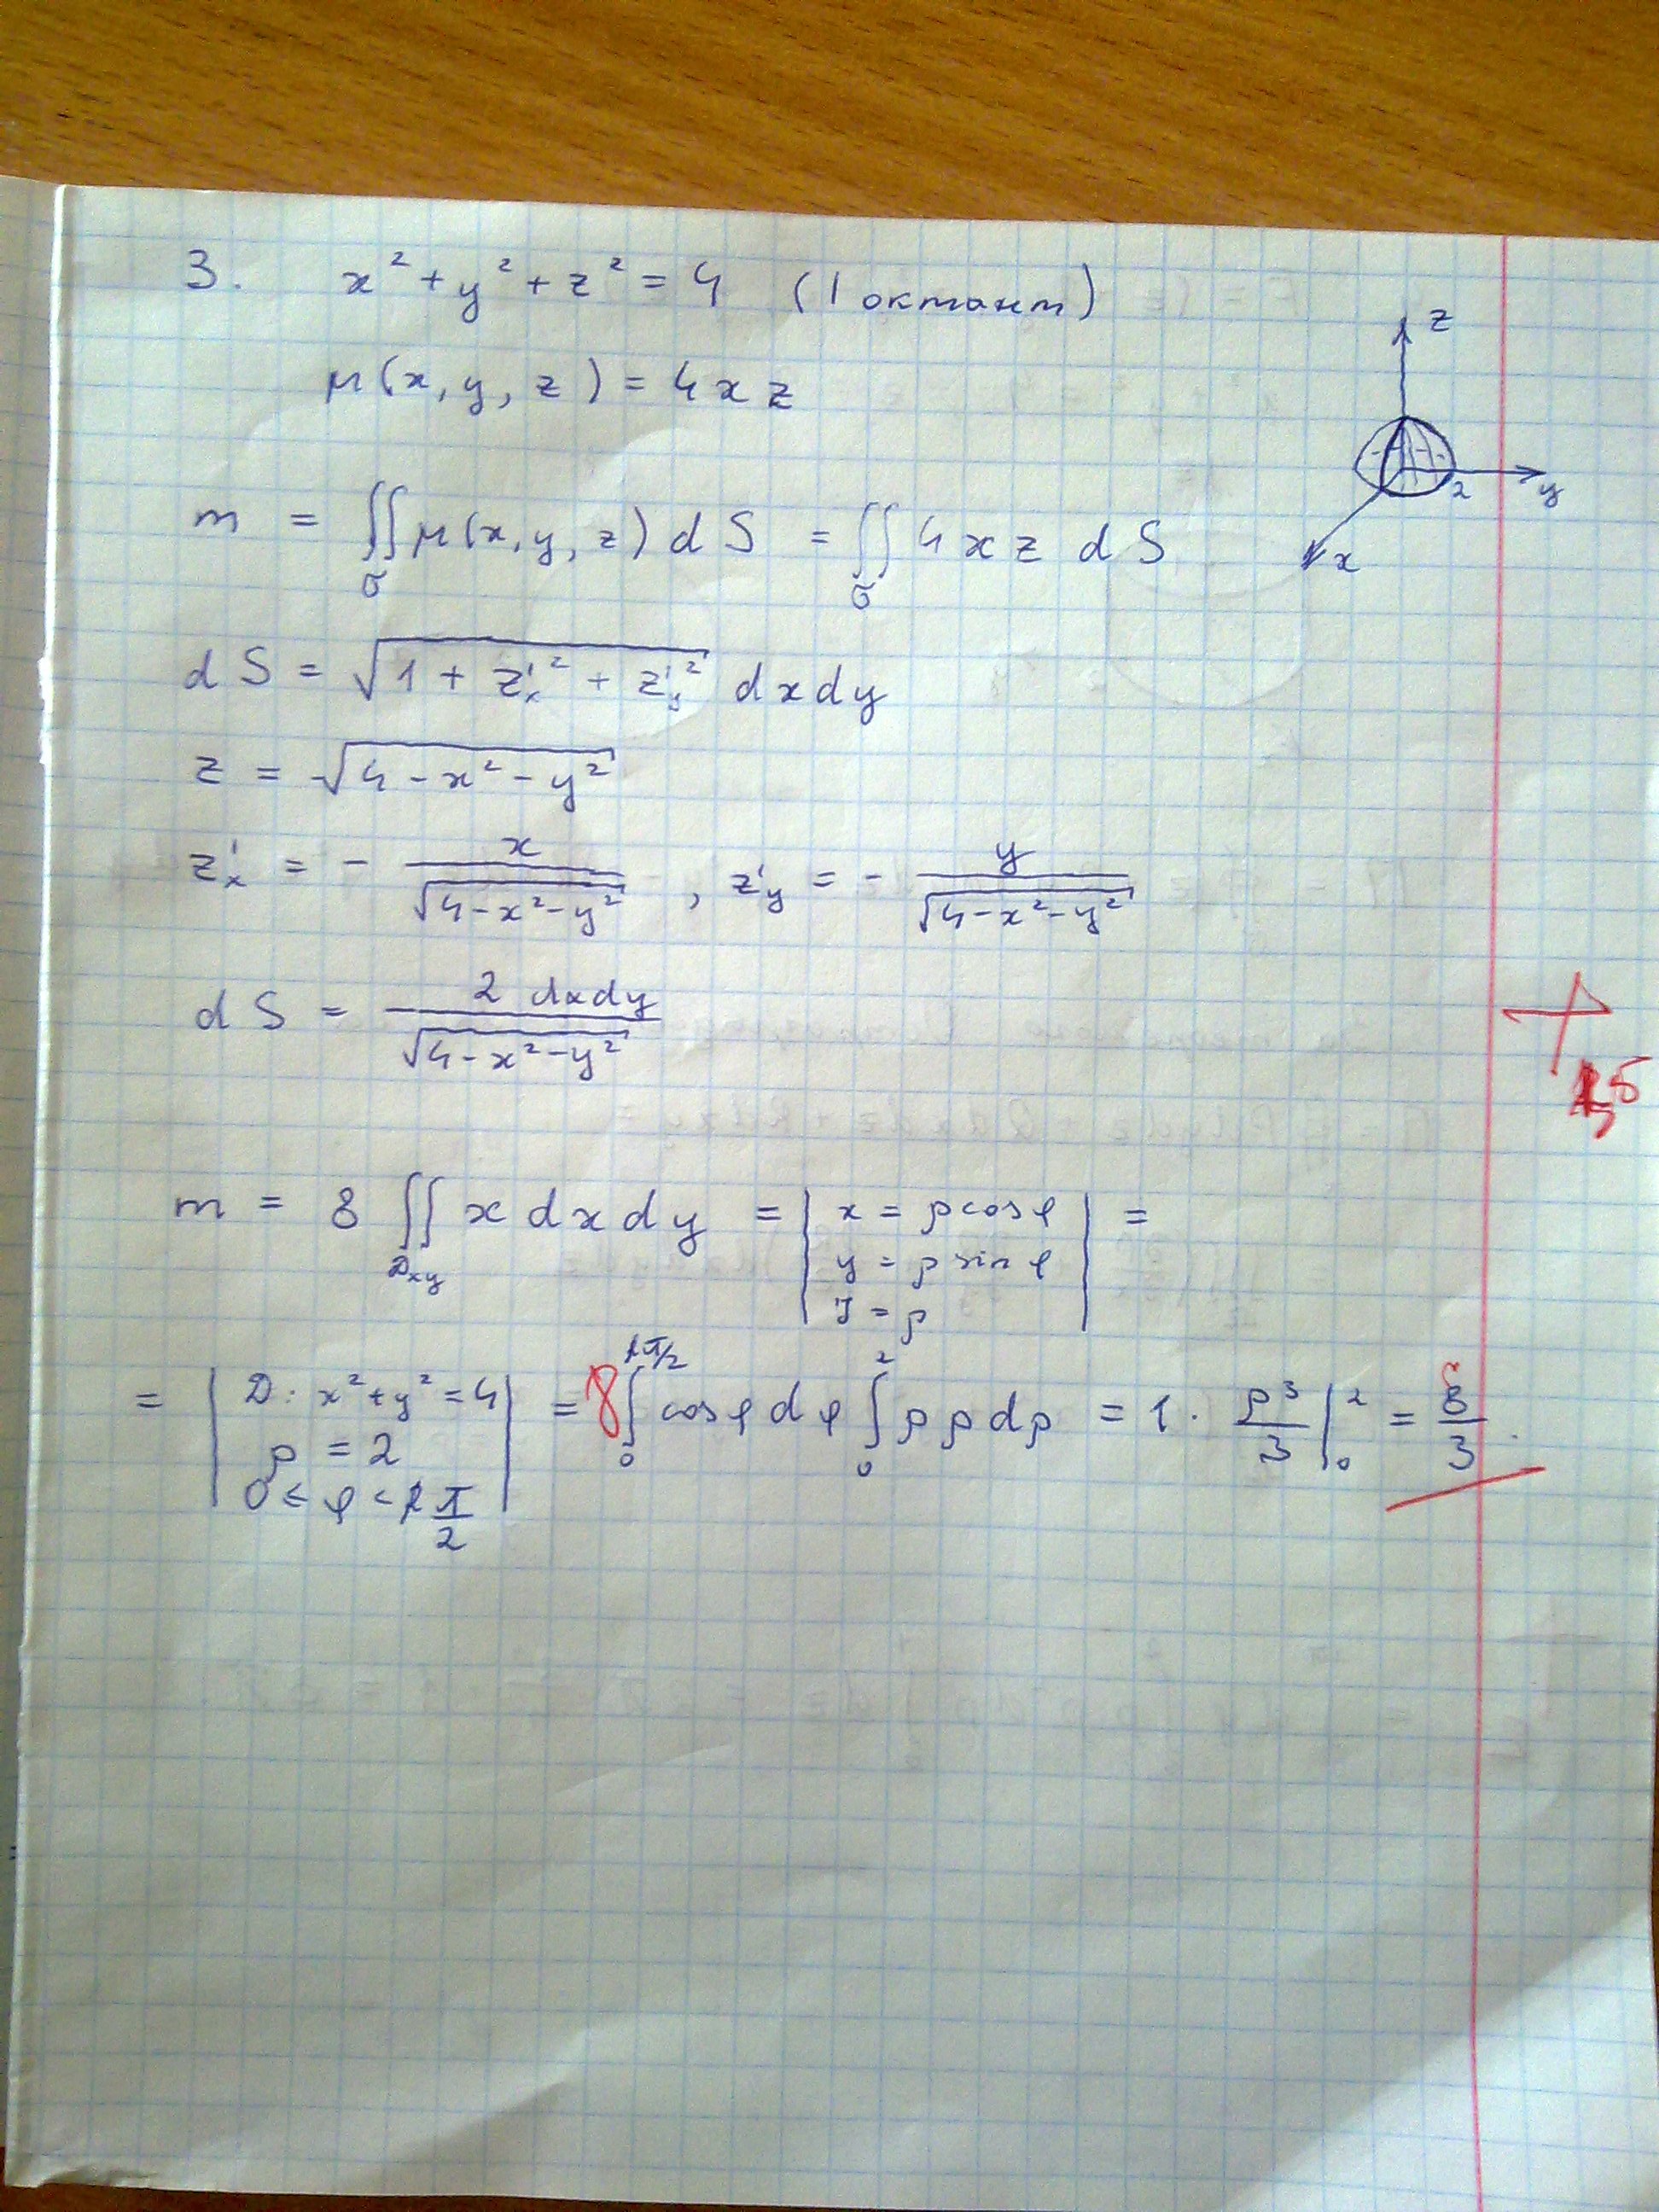 3. x² + y² + z² = 4 (1 октант)
μ(x, y, z) = 4xz
z
2
y
x
m = ∬_σ μ(x, y, z) dS = ∬_σ 4xz dS
dS = √(1 + z'ₓ² + z'_y²) dxdy
z = √(4 - x² - y²)
z'ₓ = - x/√(4-x²-y²), z'_y = - y/√(4-x²-y²)
dS = 2 dxdy/√(4-x²-y²)
m = 8 ∬_Dxy x dxdy = | x = ρcosφ
y = ρ sinφ
J = ρ | =
= | D: x² + y² = 4
ρ = 2
0 ≤ φ < π/2 | = 8 ∫₀^(π/2) cosφ dφ ∫₀² ρ ρ dρ = 1 · ρ³/3 |₀² = 8/3.